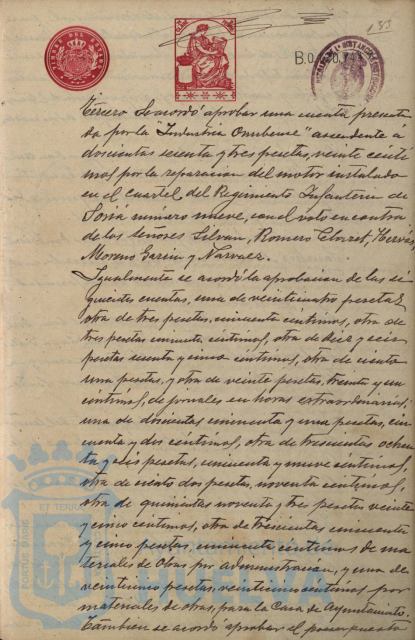 133
TIMBRE DEL ESTADO
B.0
Tercero Se acordó aprobar una cuenta presenta
da por la "Industria Onubense" ascendente a
doscientas sesenta y tres pesetas, veinte cénti
mos por la reparación del motor instalado
en el Cuartel del Regimiento Infantería de
Soria número nueve, con el voto en contra
de los señores Silvan, Romero Hervás,
Moreno García y Narvaez.
Igualmente se acordó la aprobación de las si
guientes cuentas, una de veinticuatro pesetas
otra de tres pesetas, cincuenta céntimos, otra de
tres pesetas cincuenta céntimos, otra de diez y seis
pesetas sesenta y cinco céntimos, otra de ciento
una pesetas, y otra de veinte pesetas, treinta y un
céntimos, de jornales en horas extraordinarias;
una de doscientas cincuenta y una pesetas, cin
cuenta y dos céntimos, otra de trescientas ochen
ta y seis pesetas, cincuenta y nueve céntimos,
otra de ciento dos pesetas, noventa céntimos,
otra de quinientas noventa y tres pesetas veinte
y cinco céntimos, otra de trescientas cincuenta
y cinco pesetas, cincuenta céntimos de ma
teriales de Obras por administración, y una de
veintiuna pesetas, veinticinco céntimos por
materiales de obras, para la Casa de Ayuntamiento.
También se acordó aprobar el presupuesto
PORTUS MARIS
ET TERRAE
HUELVA